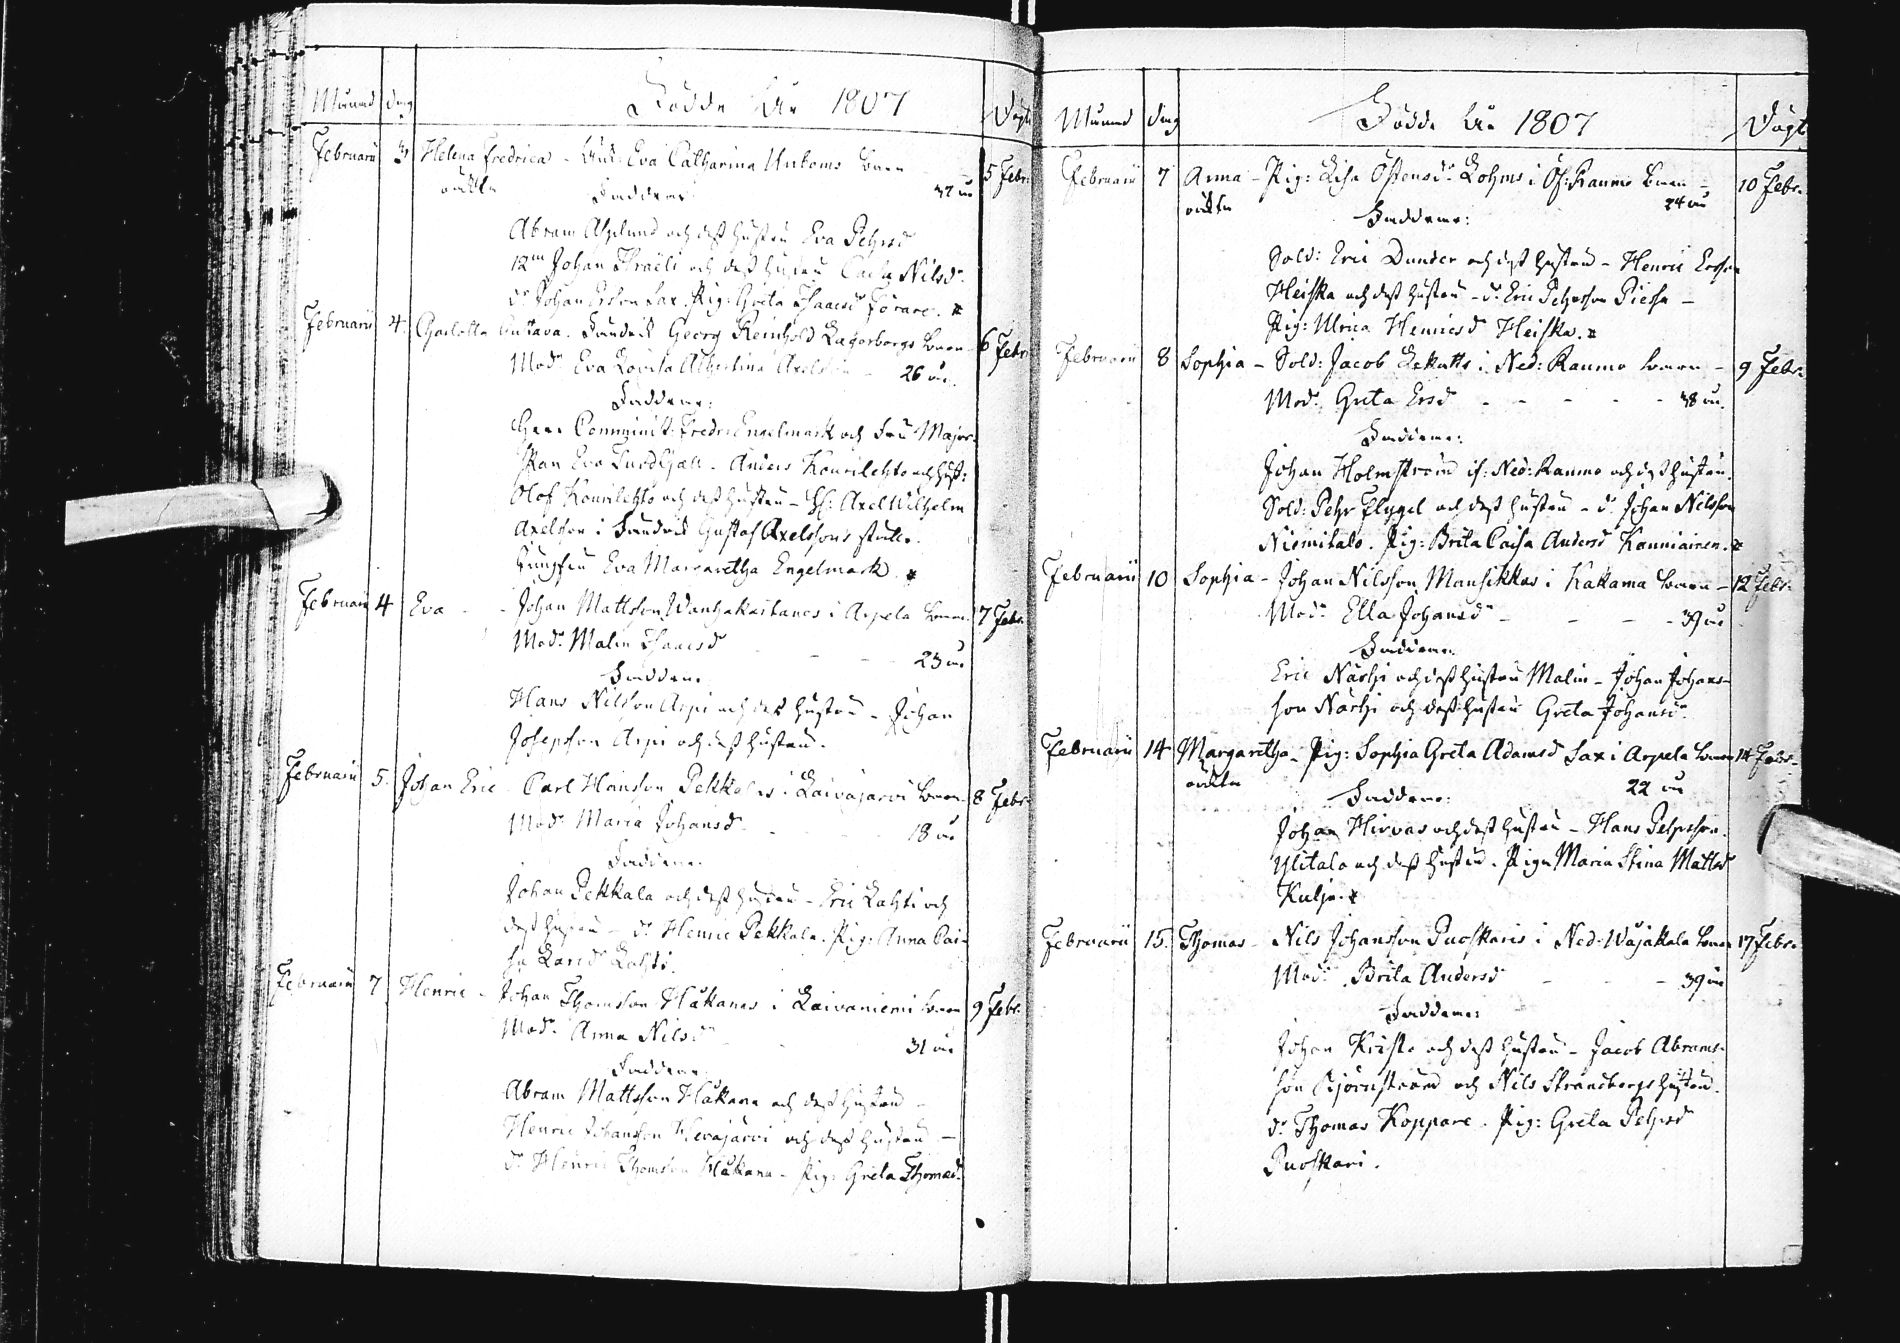 Månad dag Födde År 1807 Döpt
Februarii 3 Helena Fredrica - Enk: Eva Catharina Barn 5 Febr:
oäkta Faddrar: 37 år
Abram Asplund och dess hustru Eva Pehrsd:
Johan Israeli och dess hustru Caisa Nilsd:
d: Johan Ersson Lax. Pig: Greta Isaacsd Förare.
Februarii 4. Charlotta Gustava. Georg Reinhold Lagerborgs barn 6 Febr:
Mod: Eva Lovisa Albertina 26 år.
Faddrar:
Herr Comminist: Fredr: Engelmark och Fru Major-
skan Eva - Anders Kourilehto och hust:
Olof Kourilehto och dess hustru - Axel Wilhelm
Axelson i Gustaf Axelssons ställe.
Jungfru Eva Margaretha Engelmark.
Februarii 4 Eva - Johan Mattsson Wanhakaitanes i Arpela barn 7 Febr:
Mod: Malin Isaacsd - - - 23 år
Faddrar:
Hans Nilsson Arpi och dess hustru - Johan
Josepsson Arpi och dess hustru.
Februarii 5. Johan Eric - Carl Hansson Pekkalas i Kaivajärvi barn 8 Febr:
Mod: Maria Johansd: - - 18 år
Faddrar:
Johan Pekkala och dess hustru - Eric Lahti och
dess hustru - d: Henric Pekkala. Pig: Anna Cai-
sa Larsd Lahti.
Februarii 7 Henric - Johan Thomsson Hakanes i Laivaniemi barn 9 Febr:
Mod: Anna Nilsd - - 31 år
Faddrar:
Abram Mattsson Hakana och dess hustru -
Henric Johansson Hevajärvi och dess hustru -
d: Henric Thomsson Hakana - Pig: Greta Thomsd:
Månad dag Födde År 1807 Döpt
Februarii 7 Anna - Pig: Lisa Östensd: Lohms i Öf: Raumo barn - 10 Febr:
oäkta 24 år
Faddrar:
Sold: Eric Dunder och dess hustru - Henric Ersson
Heiska och dess hustru - d: Eric Pehrsson Piessa -
Pig: Ulrica Henricsd Heiska.
Februarii 8 Sophia - Sold: Jacob Lekatts i Ned: Raumo barn - 9 Febr:
Mod: Greta Ersd - - - - - 38 år.
Faddrar:
Johan Holmström if: Ned: Raumo och dess hustru.
Sold: Pehr Flygel och dess hustru - d: Johan Nilsson
Niemitalo. Pig: Brita Caisa Andersd Kauniainen.
Februarii 10 Sophia - Johan Nilsson Mansikkas i Kakama barn - 12 Febr:
Mod: Ella Johansd: - - - - 39 år
Faddrar:
Eric Närhi och dess hustru Malin - Johan Johans-
son Närhi och dess hustru Greta Johansd:
Februarii 14 Margaretha - Pig: Sophia Greta Adamsd Lax i Arpela barn 14 Febr:
oäkta 22 år
Faddrar:
Johan Hirvas och dess hustru - Hans Pehrsson
Ylitalo och dess hustru. Pigan Maria Stina Mattsd
Kulju.
Februarii 15. Thomas - Nils Johansson Puoskaris i Ned: Wajakala barn 17 Febr:
Mod: Brita Andersd - - - 39 år
Faddrar:
Johan och dess hustru - Jacob Abrams-
son Björnström och Nils Strandbergs hustru.
d: Thomas Koppare. Pig: Greta Pehrsd
Puoskari.